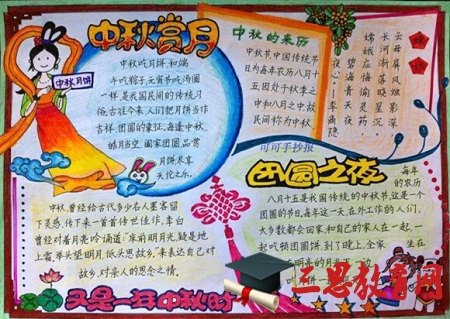 中秋赏月
中秋月饼
中秋吃月饼,和端
午吃粽子,元宵节吃汤圆
一样,是我国民间的传统习
俗.古往今来,人们把月饼当作
吉祥、团圆的象征.每逢中秋,
皓月当空,阖家团圆,品尝
月饼,尽享
天伦之乐.
中秋的来历
中秋节,中国传统节
日.为每年农历八月十
五.因处于秋季之
中和八月之中,故
民间称为中秋
云母屏风烛影深
长河渐落晓星沉
嫦娥应悔偷灵药
碧海青天夜
夜心!——李商隐
可可手抄报
团圆之夜
每年
的农历
八月十五是我国传统的中秋节,这是一个
团圆的节日.每年这一天,在外工作的人们,
大多数都会回家,和自己的家人在一起,一
起吃顿团圆饼,到了晚上,全家 坐在
中秋,曾经给古代多少名人墨客留
下灵感,传下来一首首传世佳作,李白
曾经对着月亮吟诵道:"床前明月光,疑是地
上霜,举头望明月,低头思故乡."来表达自己对
故乡,对亲人的思念之情.
又是一年中秋时
三思教育网